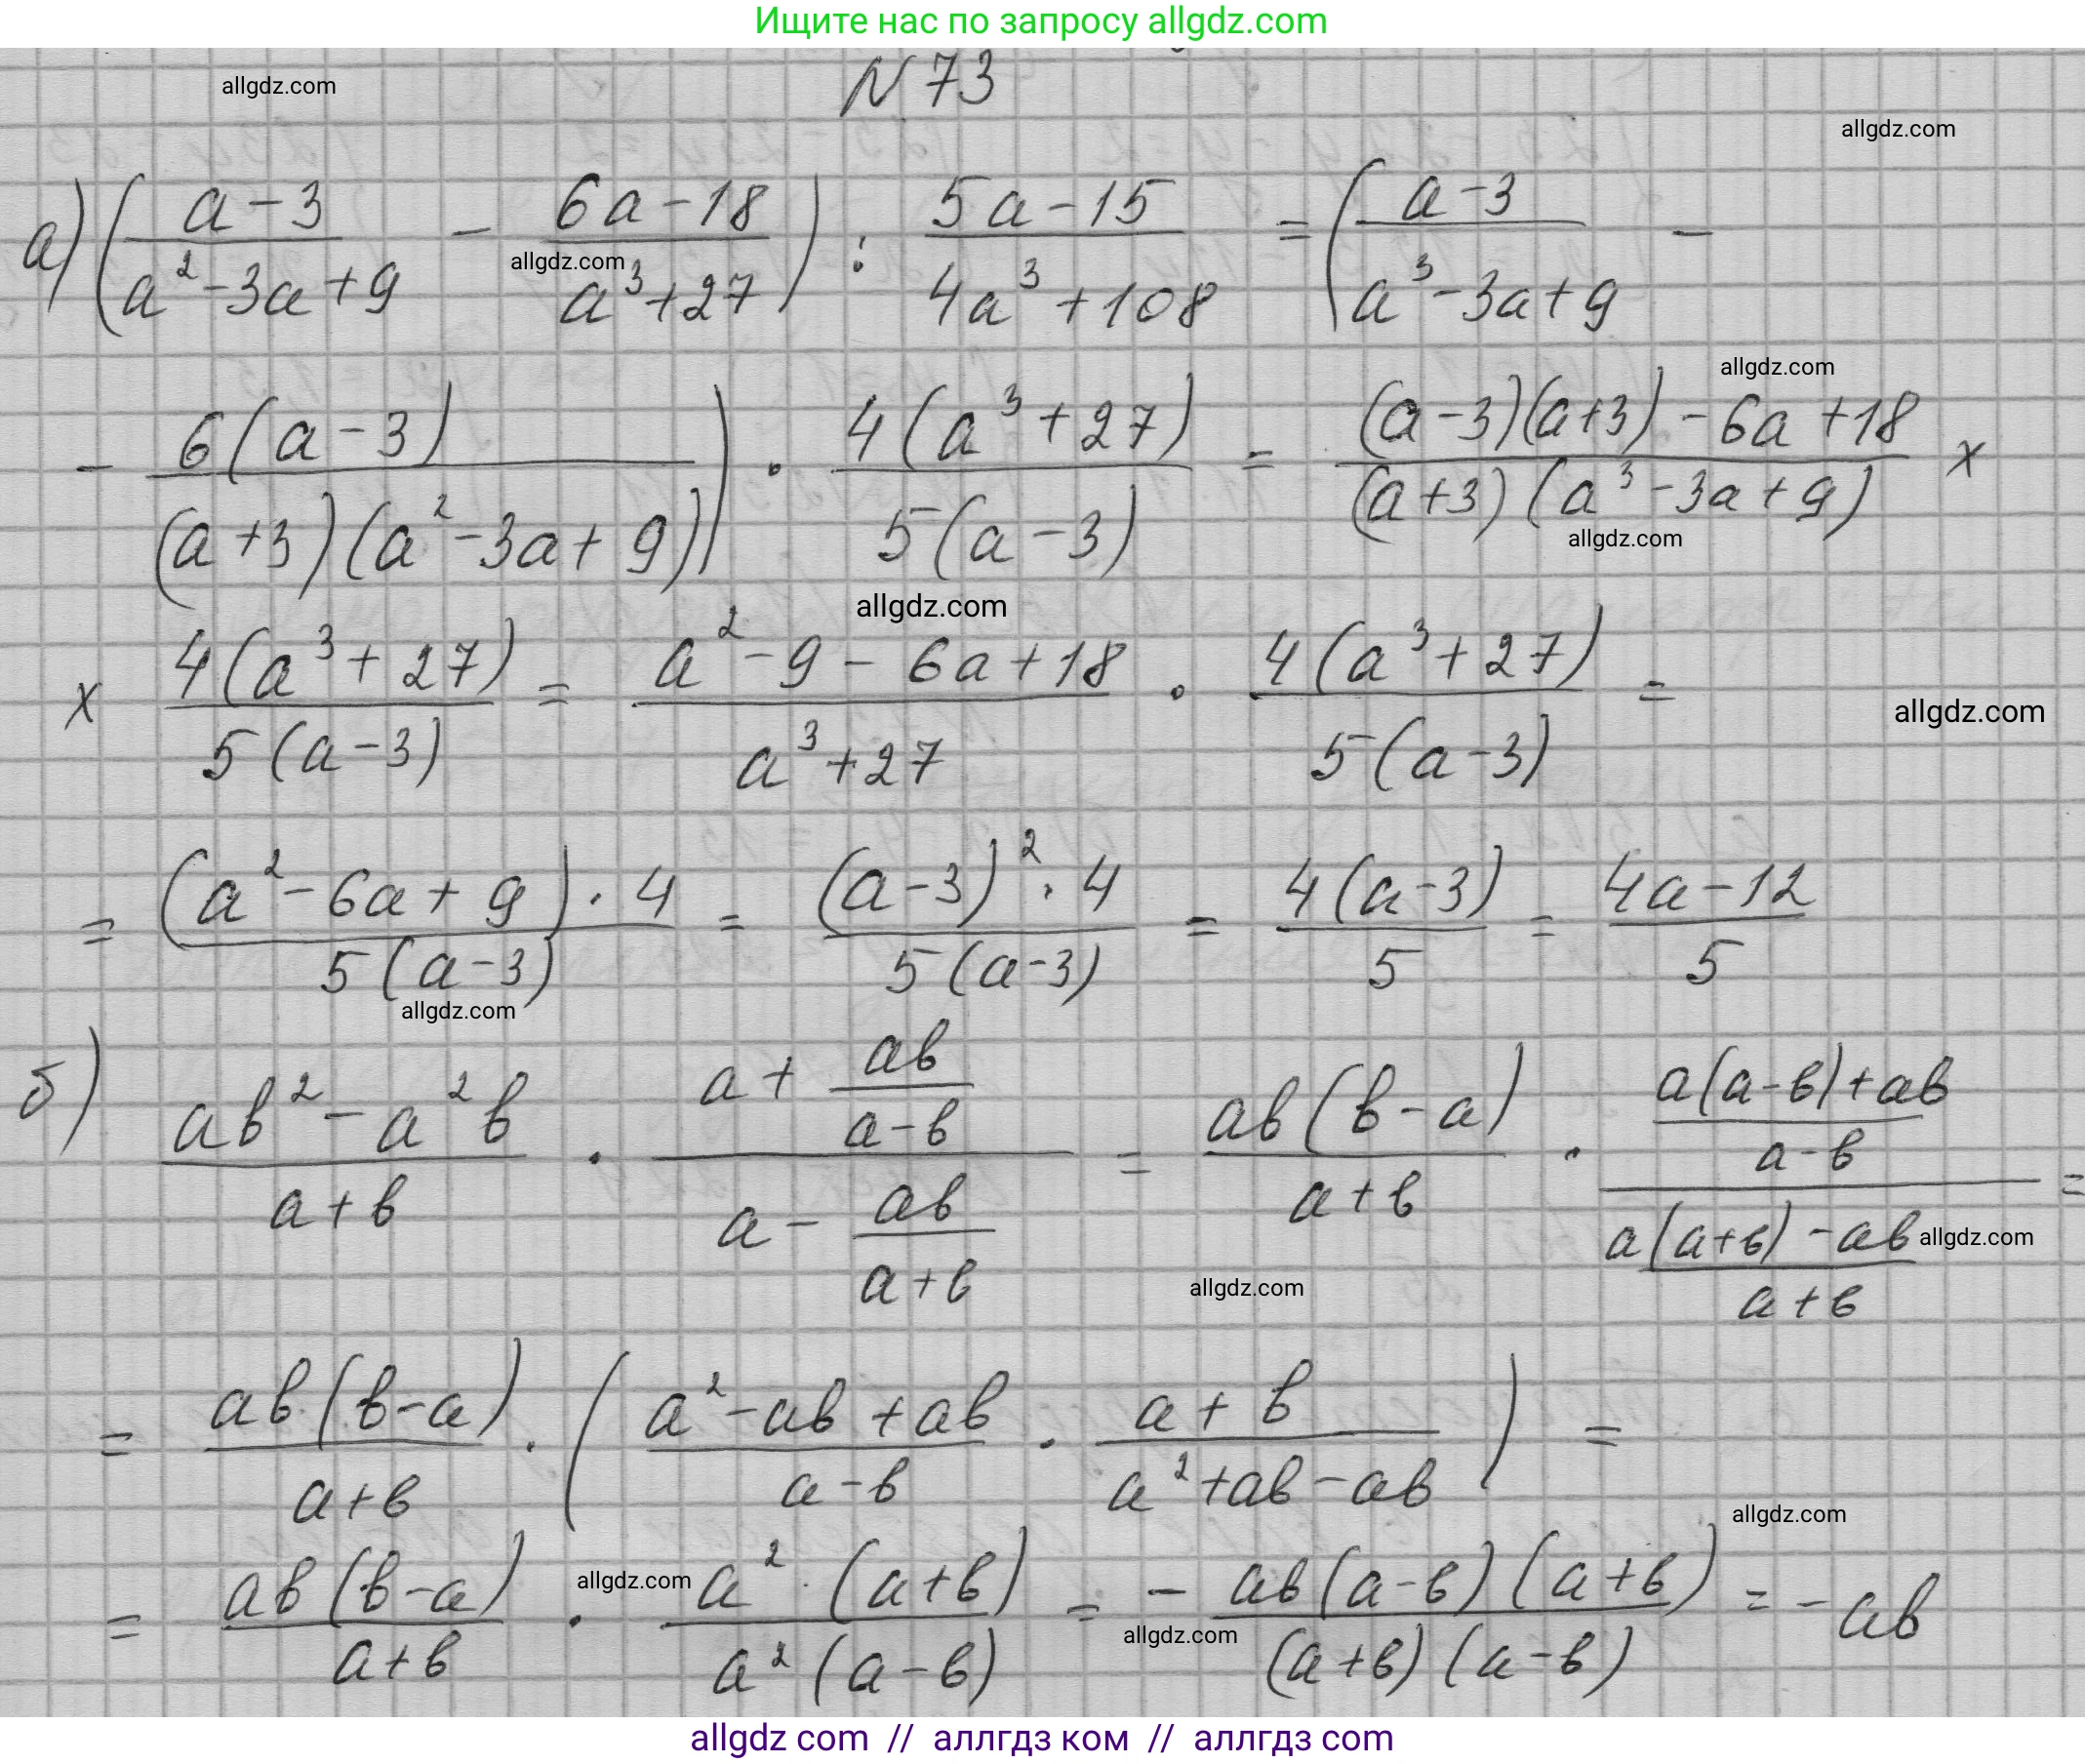 Ищите нас по запросу allgdz.com
N 73
allgdz.com
allgdz.com
а) ((a-3)/(a²-3a+9) - (6a-18)/(a³+27)) : (5a-15)/(4a³+108) = ((a-3)/(a³-3a+9) -
allgdz.com
allgdz.com
- 6(a-3)/((a+3)(a²-3a+9))) · 4(a³+27)/(5(a-3)) = ((a-3)(a+3)-6a+18)/((a+3)(a³-3a+9)) x
allgdz.com
allgdz.com
x 4(a³+27)/(5(a-3)) = (a²-9-6a+18)/(a³+27) · 4(a³+27)/(5(a-3)) =
allgdz.com
= ((a²-6a+9)·4)/(5(a-3)) = ((a-3)²·4)/(5(a-3)) = 4(a-3)/5 = (4a-12)/5
allgdz.com
б) (ав²-a²в)/(a+в) · (a+ав/(a-в))/(a-ав/(a+в)) = ав(в-a)/(a+в) · ((a(a-в)+ав)/(a-в))/((a(a+в)-ав)/(a+в)) =
allgdz.com
allgdz.com
= ав(в-a)/(a+в) · ((a²-ав+ав)/(a-в) · (a+в)/(a²+ав-ав)) =
allgdz.com
= ав(в-a)/(a+в) · a²·(a+в)/(a²(a-в)) = - ав(a-в)(a+в)/((a+в)(a-в)) = -ав
allgdz.com
allgdz.com
allgdz com // аллгдз ком // аллгдз com